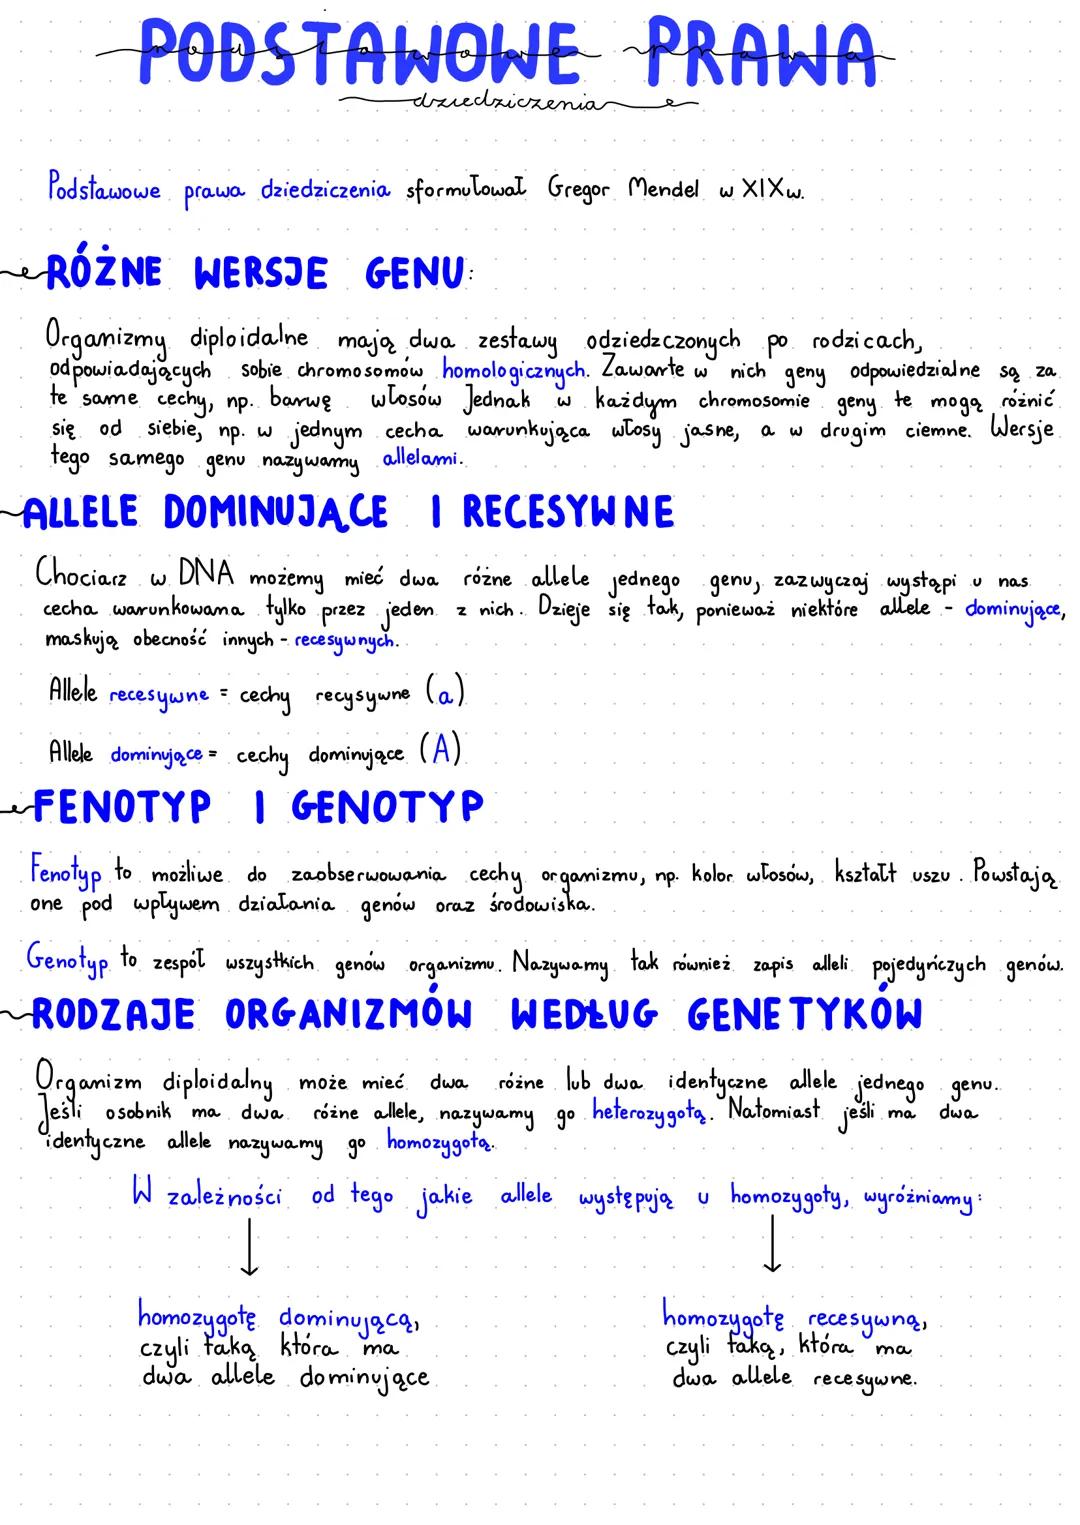 PODSTAWOWE PRAWA
podstawowe prawa
dziedziczenia
Podstawowe prawa dziedziczenia sformułował Gregor Mendel w XIXw.
RÓŻNE WERSJE GENU:
Organizmy diploidalne mają dwa zestawy odziedzczonych po rodzicach,
odpowiadających sobie chromosomów homologicznych. Zawarte w nich geny odpowiedzialne są za
te same cechy, np. barwę włosów Jednak w każdym chromosomie geny te mogą różnić
się od siebie, np. w jednym cecha warunkująca włosy jasne, a w drugim ciemne. Wersje
tego samego genu nazywamy allelami.
ALLELE DOMINUJĄCE I RECESYWNE
Chociarz w DNA możemy mieć dwa różne allele jednego genu, zazwyczaj wystąpi u nas
cecha warunkowana tylko przez jeden z nich. Dzieje się tak, ponieważ niektóre allele - dominujące,
maskują obecność innych - recesywnych.
Allele recesywne = cechy recysywne (a)
Allele dominujące = cechy dominujące (A)
FENOTYP I GENOTYP
Fenotyp to możliwe do zaobserwowania cechy organizmu, np. kolor włosów, kształt uszu. Powstają
one pod wpływem działania genów oraz środowiska.
Genotyp to zespół wszystkich genów organizmu. Nazywamy tak również zapis alleli pojedyńczych genów.
RODZAJE ORGANIZMÓW WEDŁUG GENETYKÓW
Organizm diploidalny może mieć dwa różne lub dwa identyczne allele jednego genu.
Jeśli osobnik ma dwa różne allele, nazywamy go heterozygotą. Natomiast jeśli ma dwa
identyczne allele nazywamy go homozygotą.
W zależności od tego jakie allele występują u homozygoty, wyróżniamy:
homozygotę dominującą,
czyli taką która ma
dwa allele dominujące
homozygotę recesywną,
czyli taką, która ma
dwa allele recesywne.